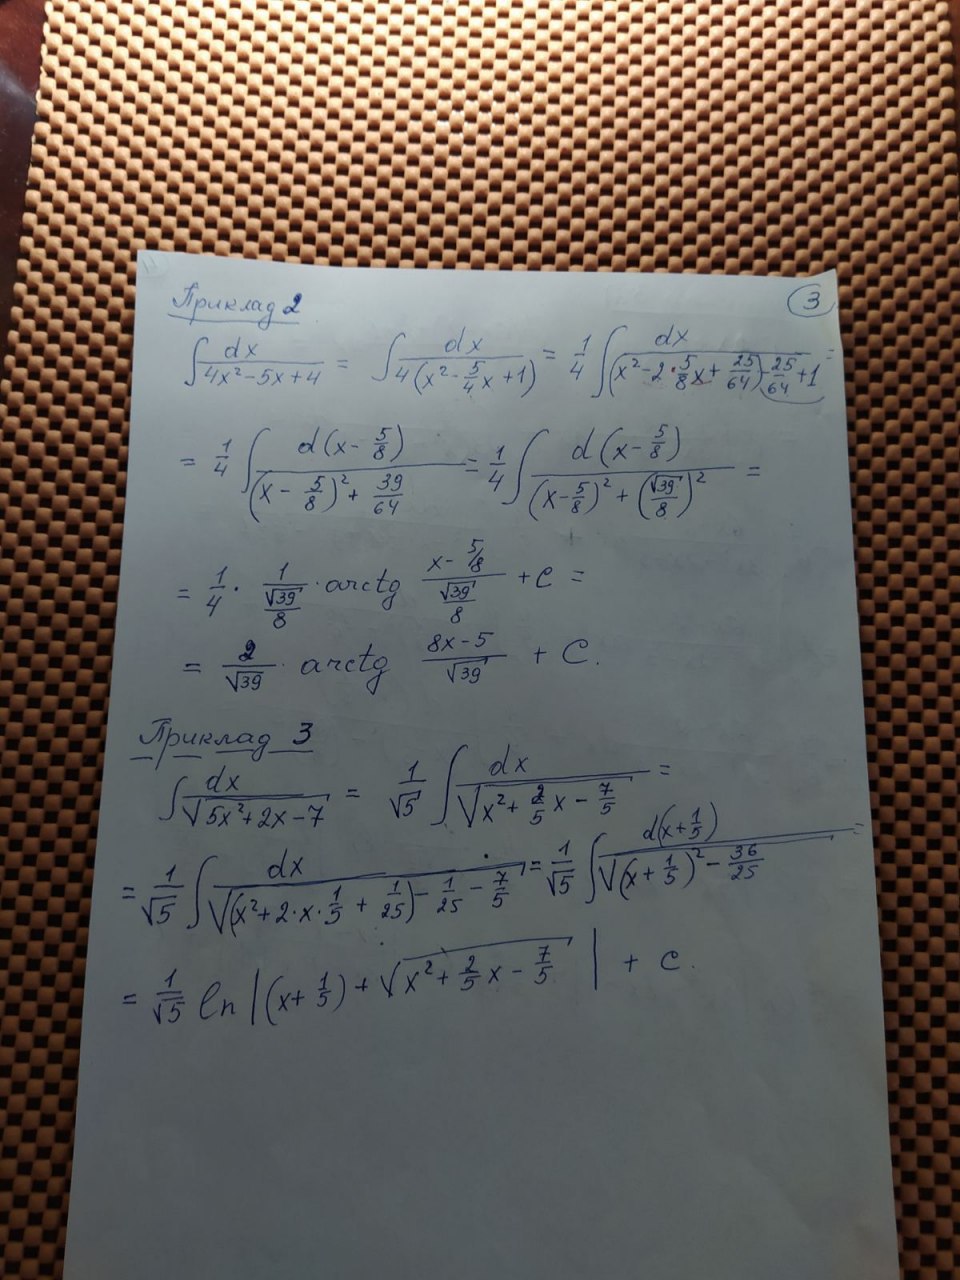 Приклад 2
3
∫ dx/(4x²−5x+4) = ∫ dx/(4(x²−5/4x+1)) = 1/4 ∫ dx/((x²−2·5/8x+25/64)−25/64+1) =
= 1/4 ∫ d(x−5/8)/((x−5/8)²+39/64) = 1/4 ∫ d(x−5/8)/((x−5/8)²+(√39/8)²) =
= 1/4 · 1/(√39/8) · arctg (x−5/8)/(√39/8) + C =
= 2/√39 · arctg (8x−5)/√39 + C.
Приклад 3
∫ dx/√(5x²+2x−7) = 1/√5 ∫ dx/√(x²+2/5x−7/5) =
= 1/√5 ∫ dx/√((x²+2·x·1/5+1/25)−1/25−7/5) = 1/√5 ∫ d(x+1/5)/√((x+1/5)²−36/25) =
= 1/√5 ln|(x+1/5)+√(x²+2/5x−7/5)| + C.